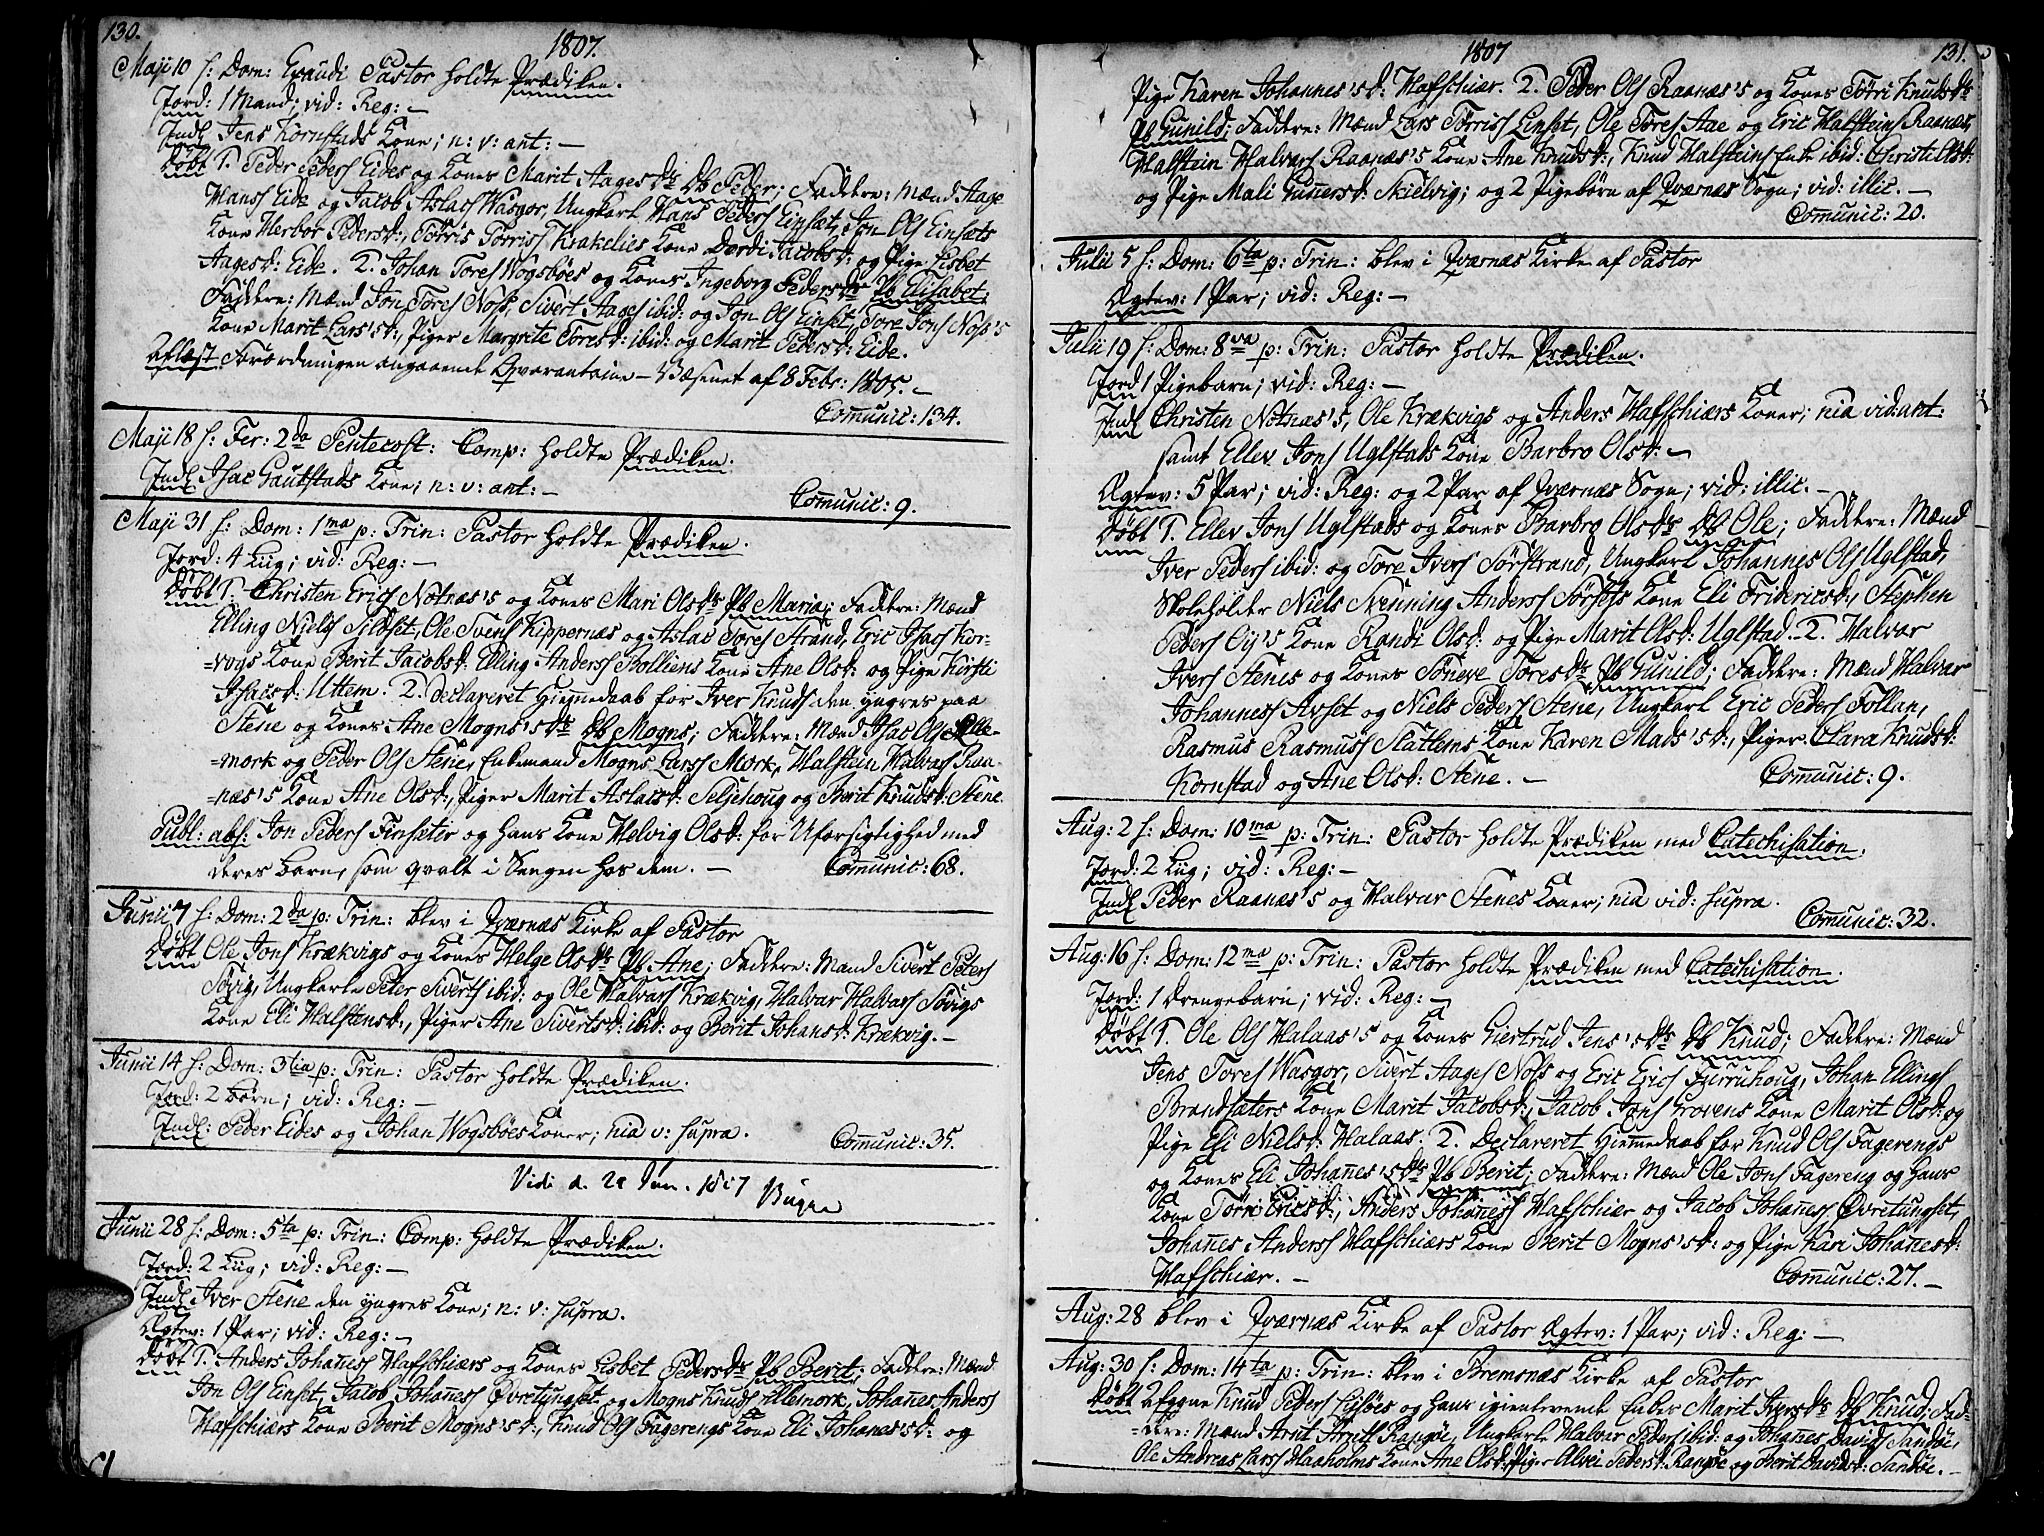 130.
1807.
Maji 10 f: Dom: Exaudi Pastor holdte Prædiken.
Jord: 1 Mand; vid: Reg: —
Indl Jens Kornstads Kone; n: v: ant: —
Døbt 1. Peder Peders Eides og Kones Marit Aages Dr Db Peder; Faddere: Mænd Aage
Hanss Eide og Jacob Aslacs Wasgor, Ungkarl Hans Peders Einset, Jon Ols Einsets
Kone Herbor Pedersd:, Torris Torriss Krakelies Kone Dordi Jacobsd: og Pige Lisbet
Aagesd: Eide. 2. Johan Tores Wogsbøes og Kones Ingeborg Peders Dr Pb Elisabet;
Faddere: Mænd Jon Tores Noss, Sivert Aages ibid: og Jon Ols Einset, Tore Jons Noss's
Kone Marit Lars'sd:, Piger Margrete Toresd: ibid: og Marit Pedersd: Eide.
Aflæst Forordningen angaaende Qvarantaine-Væsenet af 8 Febr: 1805. —
Comunic: 134.
Maji 18 f: Fer: 2da Pentecost: Comp: holdte Prædiken.
Indl Isac Gautstads Kone; n: v: ant: —
Comunic: 9.
Maji 31 f: Dom: 1ma p: Trin: Pastor holdte Prædiken.
Jord: 4 Liig; vid: Reg: —
Døbt 1. Christen Erics Notnæs's og Kones Mari Ols Dr Pb Maria; Faddere: Mænd
Elling Niels Sildset, Ole Svens Kippernæs og Aslac Tores Strand, Eric Isacs Kor-
=vogs Kone Berit Jacobsd: Elling Anderss Bolliens Kone Ane Olsd: og Pige Kirsti
Isacsd: Uttem. 2. declareret Hiemmedaab for Iver Knuds den yngres paa
Stene og Kones Ane Mogns's Dr Db Mogns; Faddere: Mænd Isac Ols Alle-
=mork og Peder Ols Stene, Enkemand Mogns Larss Mork, Halstein Halvars Raa-
=næs's Kone Ane Olsd:, Piger Marit Aslacsd: Seljehoug og Berit Knudsd: Stene.
Publ: abs: Jon Peders Finseter og hans Kone Helvig Olsd: for Uforsigtighed med
deres barn, som qvalt i Sengen hos dem. — Comunic: 68.
Junii 7 f: Dom: 2da p: Trin: blev i Qværnæs Kirke af Pastor
Døbt Ole Jons Krækvigs og Kones Helge Ols Dr Pb Ane; Faddere: Mænd Sivert Peters
Søvig, Ungkarle Peter Siverts ibid: og Ole Halvars Krækvig, Halvar Halvars Søvigs
Kone Eli Halstensd:, Piger Ane Sivertsd: ibid: og Berit Johansd: Krækvig. —
Junii 14 f: Dom: 3tia p: Trin: Pastor holdte Prædiken.
Jord: 2 børn; vid: Reg: —
Indl: Peder Eides og Johan Wogsbøes Koner; nia v: supra.
Comunic: 35.
Vidi d. 20 Jun. 1807 Bugge
Junii 28 f: Dom: 5ta p: Trin: Comp: holdte Prædiken.
Jord: 2 Liig; vid: Reg: —
Indl Iver Stene den yngres Kone; n: v: supra.
Ægtev: 1 Par; vid: Reg: —
Døbt 1. Anders Johañess Hafschiærs og Kones Lisbet Peders Dr Pb Berit; Faddere: Mænd
Jon Ols Einset, Jacob Johañess Øvretungset og Mogns Knuds Allemork, Johañes Anderss
Hafschiærs Kone Berit Mogns'sd:, Knud Ols Fagerengs Kone Eli Johañes'sd: og
131.
1807
Pige Karen Johannes'sd: Hafschiær. 2. Peder Ols Raanæs's og Kones Torri Knuds Dr
Pb Gunild; Faddere: Mænd Lars Torriss Einset, Ole Tores Aae og Eric Halsteins Raanæs,
Halstein Halvars Raanæs's Kone Ane Knudsd:, Knud Halsteins Enke ibid: Christi Olsd:
og Pige Mali Guñersd: Skielvig; og 2 Pigebørn af Qværnæs Sogn; vid: illic. —
Comunic: 20.
Julii 5 f: Dom: 6ta p: Trin: blev i Qværnæs Kirke af Pastor
Ægtev: 1 Par; vid: Reg: —
Julii 19 f: Dom: 8va p: Trin: Pastor holdte Prædiken.
Jord 1 Pigebarn; vid: Reg: —
Indl Christen Notnæs's, Ole Krækvigs og Anders Hafschiærs Koner; nia vid: ant:
samt Ellev Jons Uglstads Kone Barbro Olsd: —
Ægtev: 5 Par; vid: Reg: og 2 Par af Qværnæs Sogn; vid: illic. —
Døbt 1. Ellev Jons Uglstads og Kones Barbro Ols Dr Db Ole; Faddere: Mænd
Iver Peders ibid: og Tore Ivers Sørstrand, Ungkarl Johannes Ols Uglstad,
Skoleholder Niels Nenning Anderss Sørsets Kone Eli Fridericsd:, Stephen
Peders Oy's Kone Randi Olsd: og Pige Marit Olsd: Uglstad. 2. Halvar
Ivers Stenes og Kones Søneve Tores Dr Pb Gunild; Faddere: Mænd Halvar
Johanness Avset og Niels Peders Stene, Ungkarl Eric Peders Follan,
Rasmus Rasmuss Slatlems Kone Karen Mads'sd:, Piger Clara Knudsd:
Kornstad og Ane Olsd: Stene. — Comunic: 9.
Aug: 2 f: Dom: 10ma p: Trin: Pastor holdte Prædiken med Catechisation.
Jord: 2 Liig; vid: Reg: —
Indl Peder Raanæs's og Halvar Stenes Koner; nia vid: supra.
Comunic: 32.
Aug: 16 f: Dom: 12ma p: Trin: Pastor holdte Prædiken med Catechisation.
Jord: 1 drengebarn; vid: Reg: —
Døbt 1. Ole Ols Halaas's og Kones Giertrud Jens's Dr Db Knud; Faddere: Mænd
Jens Tores Wasgor, Sivert Aages Noss og Eric Erics Furruhoug, Johan Ellings
Brandsæters Kone Marit Jacobsd:, Jacob Jons Grovens Kone Marit Olsd: og
Pige Eli Nielsd: Halaas. 2. Declareret Hiemmedaab for Knud Ols Fagerengs
og Kones Eli Johañes's Dr Pb Berit; Faddere: Mænd Ole Jons Fagereng og hans
Kone Torn Ericsd:, Anders Johañess Hafschiær og Jacob Johañess Øvretungset,
Johañes Anderss Hafschiærs Kone Berit Mogns'sd: og Pige Kari Johañesd:
Hafschiær. — Comunic: 27. —
Aug: 28 blev i Qværnæs Kirke af Pastor Ægtev: 1 Par; vid: Reg: —
Aug: 30 f: Dom: 14ta p: Trin: blev i Bremsnæs Kirke af Pastor
Døbt afgagne Knud Peders Lisøes og hans igienlevende Enkes Marit Ivers Dr Db Knud; Fad-
=dere: Mænd Arnt Arntss Rangøe, Ungkarle Halvar Peders ibid: og Johañes Davids Sandøe,
Ole Andreas Larss Haaholms Kone Ane Olsd:, Piger Alvei Pedersd: Rangøe og Berit Davidsd: Sandøe. —